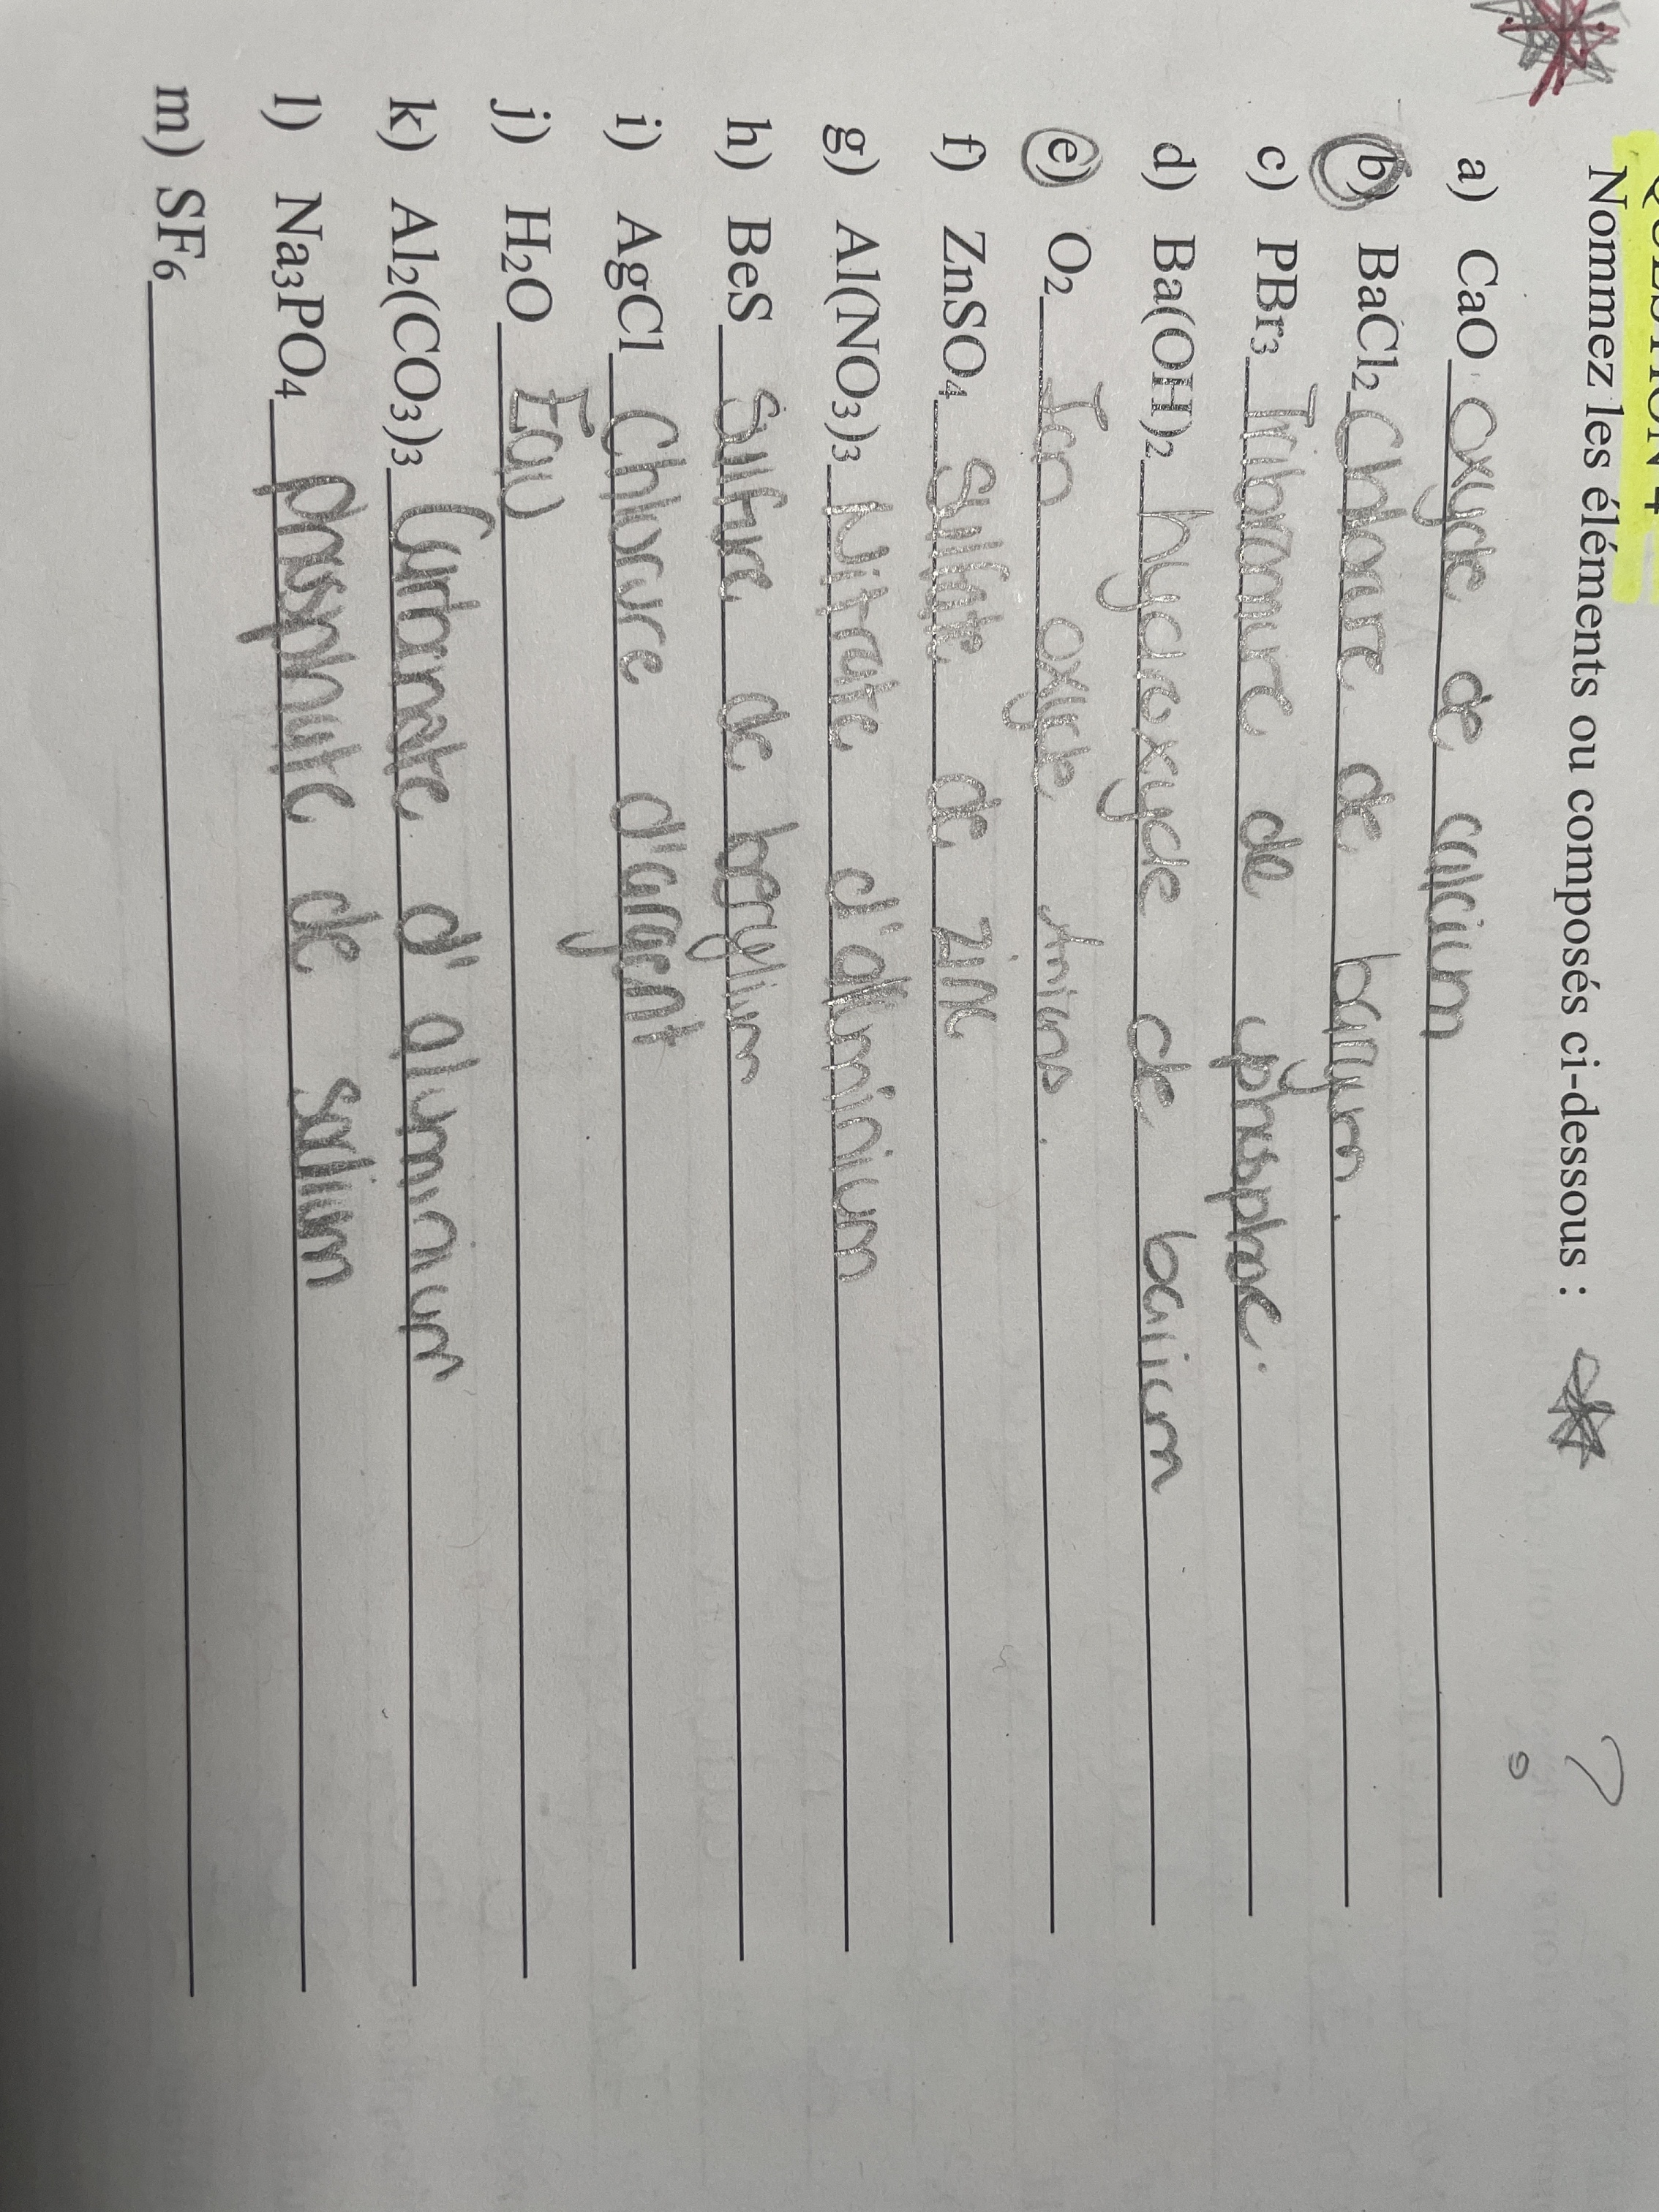 QUESTION 4
Nommez les éléments ou composés ci-dessous :
?
a) CaO oxyde de calcium
b) BaCl2 Chlorure de baryum.
c) PBr3 Tribromure de phosphore.
d) Ba(OH)2 hydroxyde de barium
e) O2 Ion oxyde Anions.
f) ZnSO4 Sulfate de zinc
g) Al(NO3)3 Nitrate d'aluminium
h) BeS Sulfure de berylium
i) AgCl Chlorure d'argent
j) H2O Eau
k) Al2(CO3)3 Carbonate d'aluminium
l) Na3PO4 phosphate de sodium
m) SF6